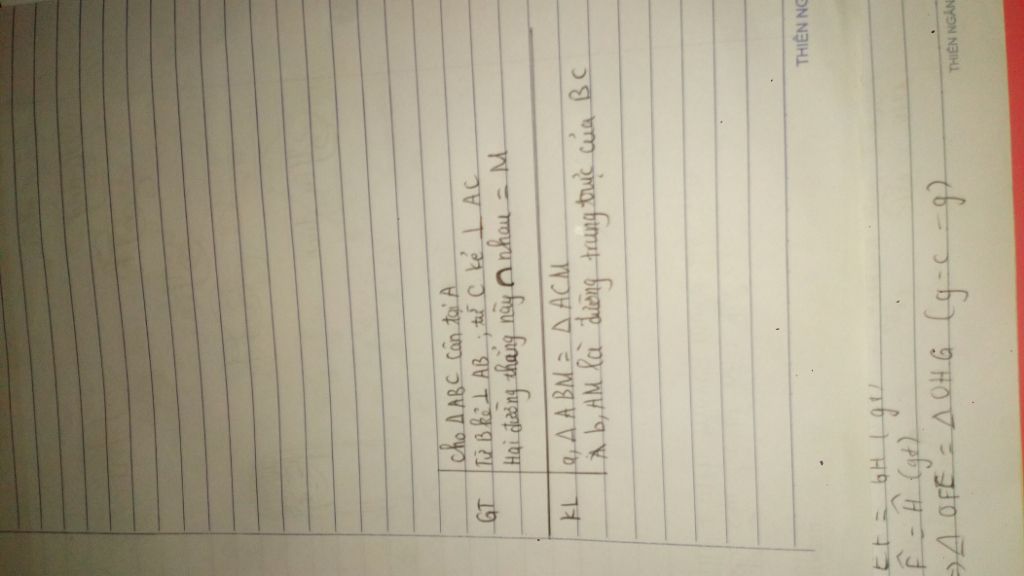 GT
Cho Δ ABC cân tại A
Từ B kẻ ⊥ AB ; từ C kẻ ⊥ AC
Hai đường thẳng này ∩ nhau = M
KL
a, Δ ABM = Δ ACM
b, AM là đường trung trực của BC
THIÊN NG
EF = GH (gt)
F̂ = Ĥ (gt)
=> Δ OFE = Δ OHG (g-c-g)
THIÊN NGÂN